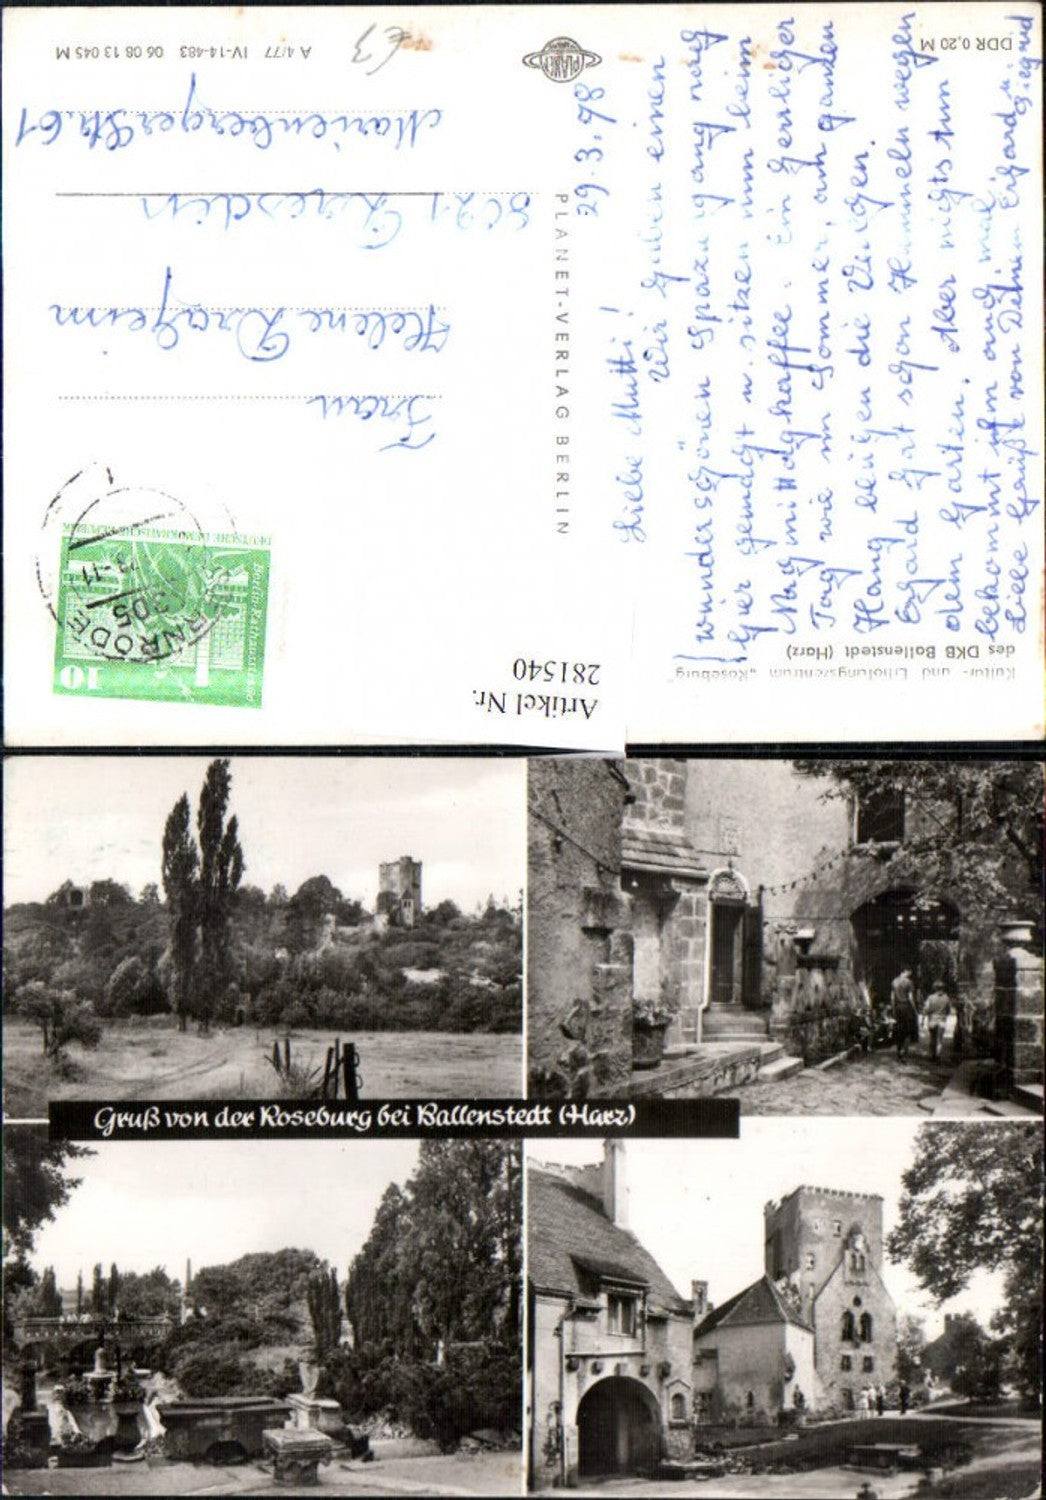 Kultur- und Erholungszentrum „Roseburg"
des DKB Ballenstedt (Harz)
DDR 0,20 M
29.3.78
Liebe Mutti!
Wir haben einen
wunderschönen Spaziergang nach
hier gemacht u. sitzen nun beim
Nachmittagskaffee. Ein herrlicher
Tag wie im Sommer, am ganzen
Hang die
hat schon Hummeln wegen
dem Garten. Aber nichts tun
bekommt ihm auch mal.
Liebe Grüße von Deinem Erhard u.
Siegrid
PLANET
PLANET-VERLAG BERLIN
A 4/77 IV-14-483 06 08 13 045 M
€ 3
DEUTSCHE DEMOKRATISCHE REPUBLIK
Berlin-Rathausstraße
10
305
-11
Frau
Helene Drageim
8021 Dresden
Marienberger Str. 61
Artikel Nr.
281540
Gruß von der Roseburg bei Ballenstedt (Harz)